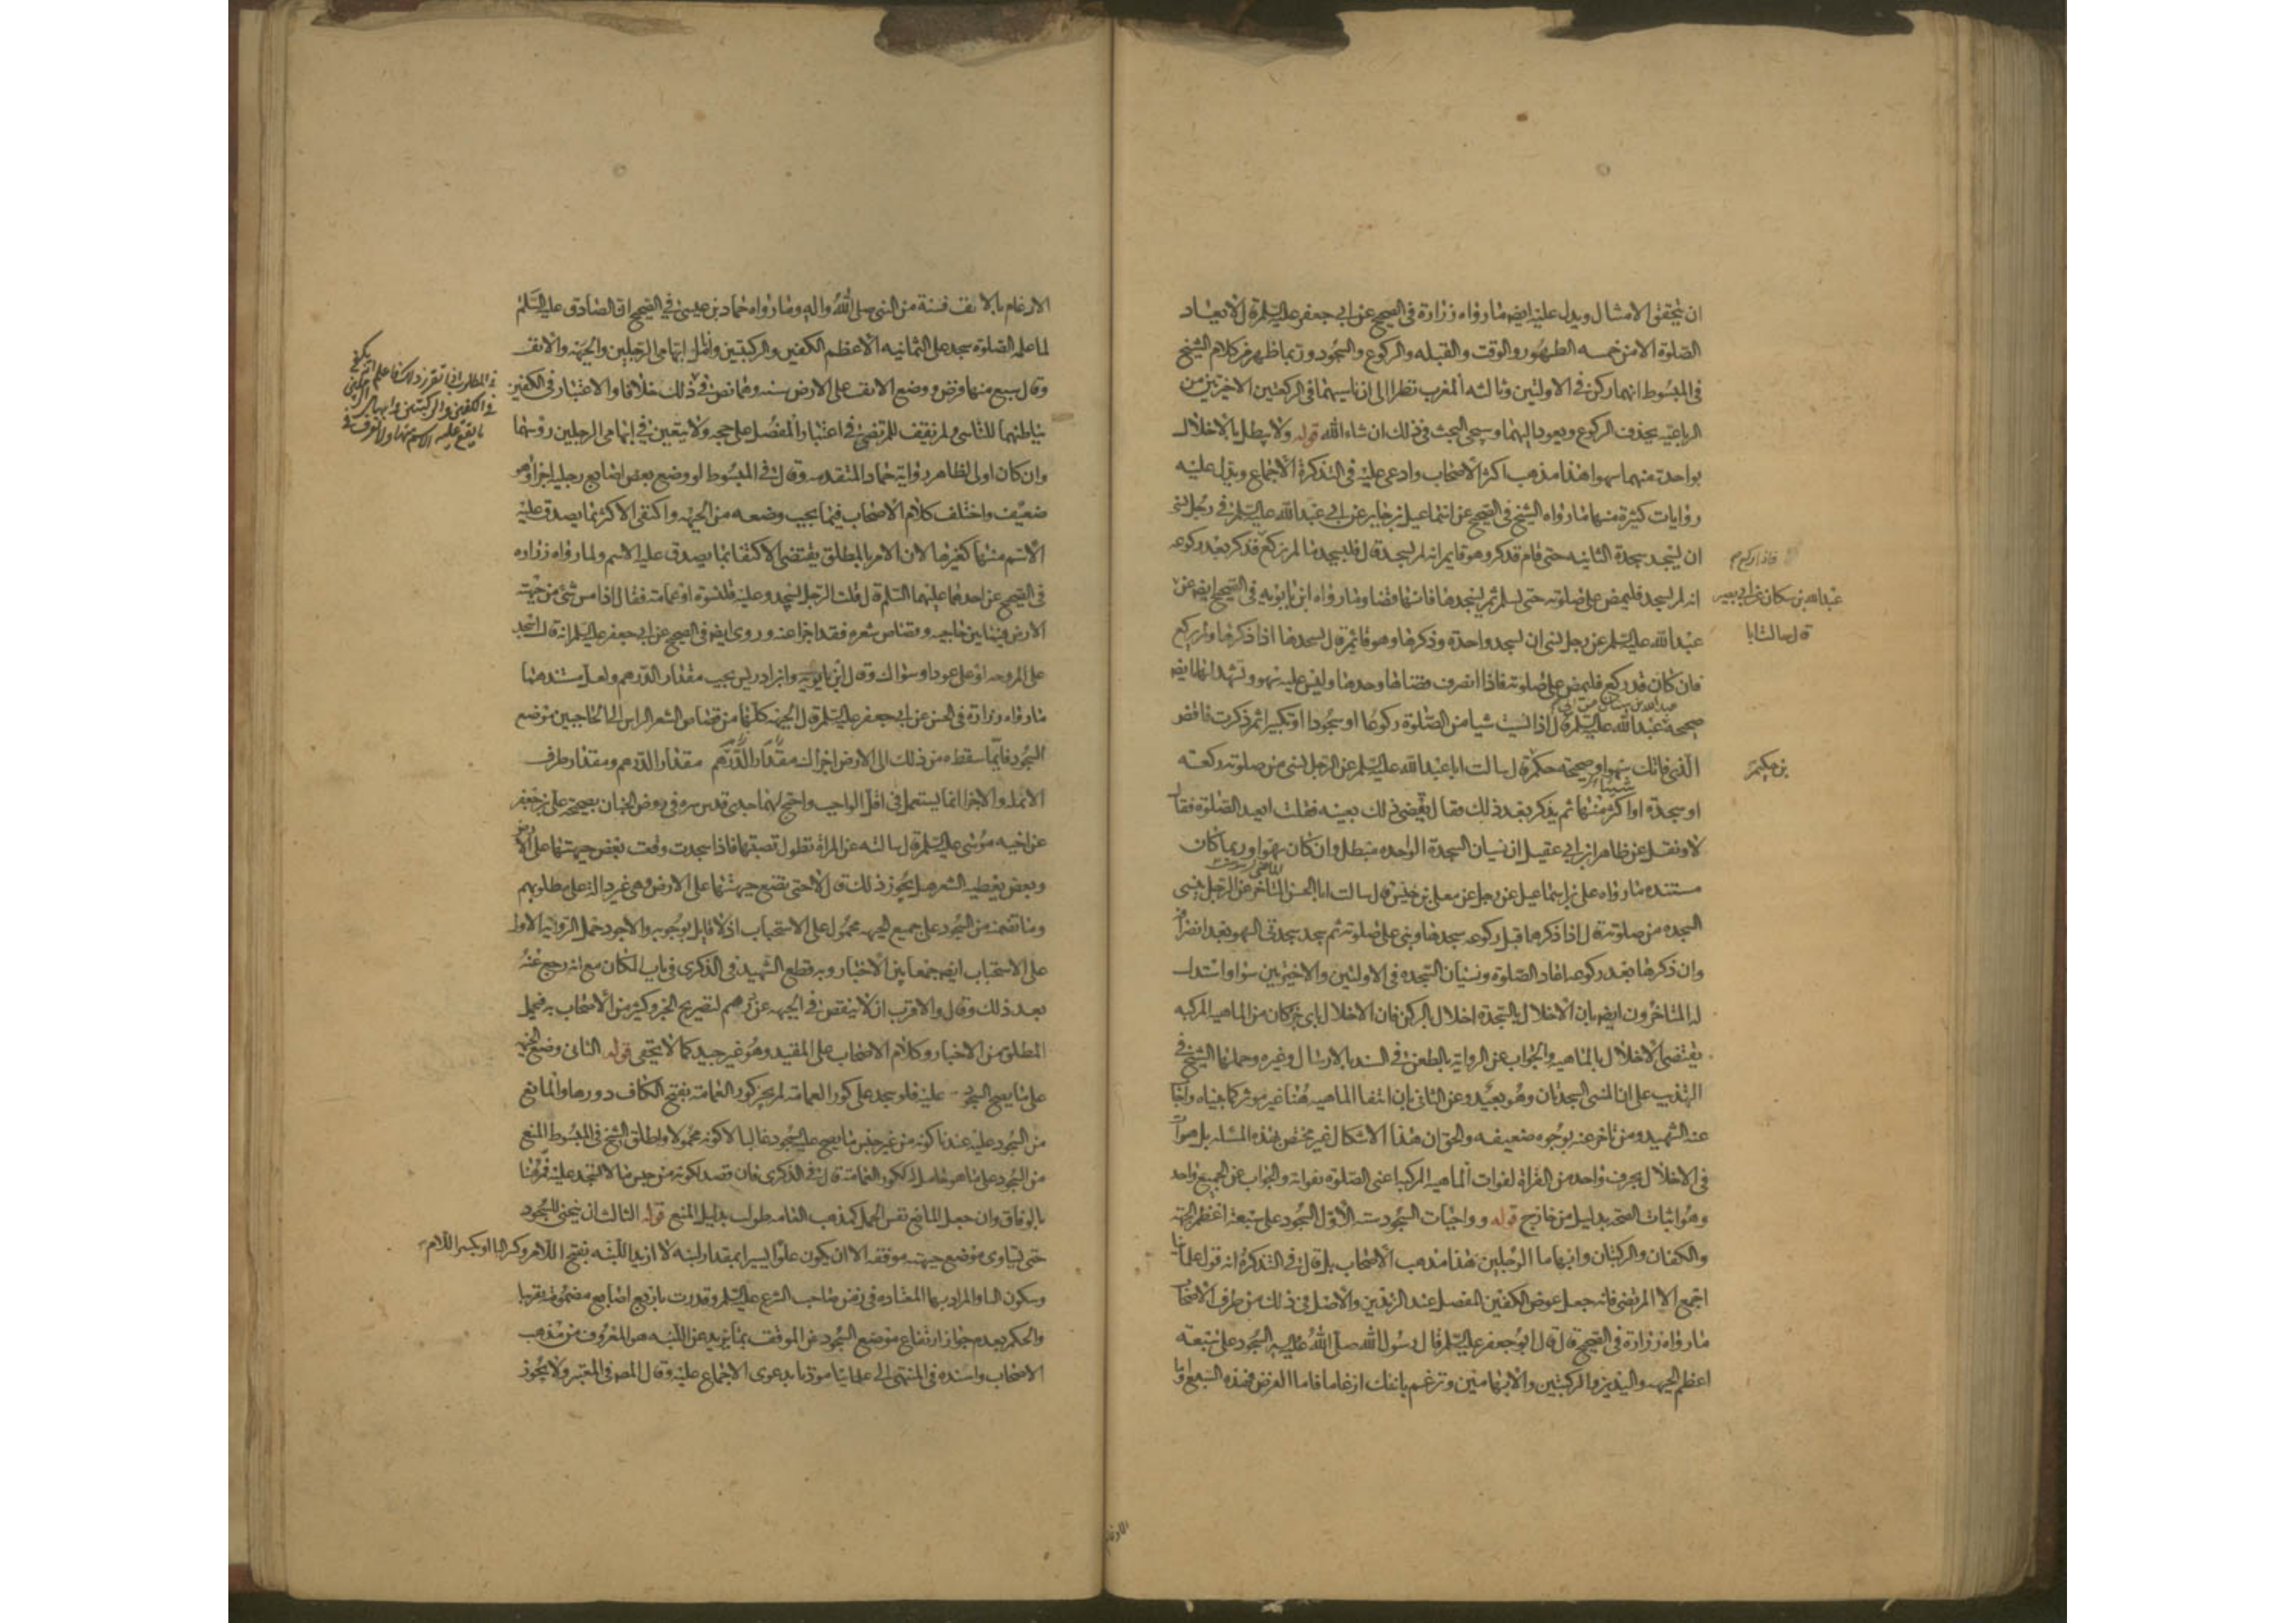 ان يتحقق الامتثال ويدل عليه ايضا ما رواه زرارة في الصحيح عن ابي جعفر عليه السلم قال لا يعاد
الصلوة الا من خمسه الطهور والوقت والقبله والركوع والسجود وربما ظهر من كلام الشيخ
في المبسوط انهما ركن في الاولتين وثالثه المغرب نظرا الى ان ناسيهما في الركعتين الاخيرتين من
الرباعيه يحذف الركوع ويعود اليهما وسيجئ البحث في ذلك ان شاء الله قوله ولا يبطل بالاخلال
بواحدة منهما سهوا هذا مذهب اكثر الاصحاب وادعى عليه في التذكرة الاجماع ويدل عليه
روايات كثيرة منها ما رواه الشيخ في الصحيح عن اسماعيل بن جابر عن ابي عبد الله عليه السلم في رجل نسي
ان يسجد سجدة الثانيه حتى قام فذكر وهو قايم انه لم يسجد قال فليسجد ما لم يركع فذكر بعد ركوعه
فاذا ركع
انه لم يسجد فليمض على صلوته حتى يسلم ثم يسجدها فانها قضا وما رواه ابن بابويه في الصحيح ايضا عن
عبد الله بن مسكان عن ابي بصير
قال سالت ابا
عبد الله عليه السلم عن رجل نسي ان يسجد واحدة وذكرها وهو قائم قال يسجدها اذا ذكرها ولم يركع
فان كان قد ركع فليمض على صلوته فاذا انصرف قضاها وحدها وليس عليه سهو وتشهد لها ايضا
عبد الله بن سنان عن ابي
صحيحة عبد الله عليه السلم قال اذا نسيت شيا من الصلوة ركوعا او سجودا او تكبيرا ثم ذكرت فاقض
الذي فاتك سهوا وصحيحة حكم قال سالت ابا عبد الله عليه السلم عن الرجل ينسى من صلوته ركعة
بن حكيم
او سجدة او اكثر منها ثم يذكر بعد ذلك فقال يقضي ذلك بعينه فقلت ايعيد الصلوة فقال
لا ونقل عن ظاهر ابن ابي عقيل ان نسيان السجدة الواحده مبطل وان كان سهوا وربما كان
مستنده ما رواه على بن اسماعيل عن رجل عن معلى بن خنيس قال سالت ابا الحسن الماضي عن الرجل ينسى
السجده من صلوته قال اذا ذكرها قبل ركوعه سجدها وبنى على صلوته ثم سجد سجدتي السهو بعد انصرافه
وان ذكرها بعد ركوعه اعاد الصلوة ونسيان السجده في الاولتين والاخيرتين سوا واستدل
له المتاخرون ايضا بان الاخلال بالسجدة اخلال بالركن فان الاخلال باي جزء كان من الماهية المركبه
يقتضي الاخلال بالماهيه والجواب عن الرواية بالطعن في السند بالارسال وغيره وحملها الشيخ في
التهذيب على ان المنسي السجدتان وهو بعيد وعن الثاني بان انتفا الماهيه هنا غير موثر كما بيناه واجاب
عنه الشهيد ومن تاخر عنه بوجوه ضعيفه والحق ان هذا الاشكال غير مختص بهذه المسئلة بل هو ات
في الاخلال بحرف واحد من القراة لفوات الماهيه المركبه اعنى الصلوة بفواته والجواب عن الجميع واحد
وهو اثبات الصحة بدليل من خارج قوله وواجبات السجود سته الاول السجود على سبعة اعظم الجبهه
والكفان والركبتان وابهاما الرجلين هذا مذهب الاصحاب بل قال في التذكرة انه قول علماينا
اجمع الا المرتضى فانه جعل عوض الكفين المفصل عند الزندين والاصل في ذلك من طرق الاصحاب
ما رواه زرارة في الصحيح قال قال ابو جعفر عليه السلم قال رسول الله صلى الله عليه السجود على سبعه
اعظم الجبهه واليدين والركبتين والابهامين وترغم بانفك ارغاما فاما الفرض فهذه السبعة واما
الارغام بالانف فسنة من النبي صلى الله واله وما رواه حماد بن عيسى في الصحيح ان الصادق عليه السلم
لما علمه الصلوة سجد على الثمانيه الاعظم الكفين والركبتين وانامل ابهامي الرجلين والجبهه والانف
وقال سبع منها فرض ووضع الانف على الارض سنه وهما نص في ذلك خلافا والاعتبار في الكفين
بباطنهما للتاسي ولم نقف للمرتضى في اعتبار المفصل على حجه ولا يتعين في ابهامي الرجلين روسهما
وان كان اولى لظاهر رواية حماد المتقدمه وقال في المبسوط لو وضع بعض اصابع رجليه اجزا وهو
ضعيف واختلف كلام الاصحاب فيما يجب وضعه من الجبهه واكتفى الاكثر بما يصدق عليه
الاسم منها كغيرها لان الامر بالمطلق يقتضي الاكتفا بما يصدق عليه الاسم ولما رواه زراره
في الصحيح عن احدهما عليهما السلم قال قلت الرجل يسجد وعليه قلنسوة او عمامة فقال اذا مس شئ من جبهته
الارض فيما بين حاجبيه وقصاص شعره فقد اجزا عنه وروى ايضا في الصحيح عن ابي جعفر عليه السلم انه قال اسجد
على المروحه او على عود او سواك وقال ابن بابويه وابن ادريس يجب مقدار الدرهم ولعل مستندهما
ما رواه زرارة في الحسن عن ابي جعفر عليه السلم قال الجبهه كلها من قصاص الشعر الراس الى الحاجبين موضع
السجود فايما سقط من ذلك الى الارض اجزاك مقدار الدرهم مقدار الدرهم ومقدار طرف
الانمله والاجزا انما يستعمل في اقل الواجب واحتج لهما جدي قدس سره في روض الجنان بصحيحة على بن جعفر
عن اخيه موسى عليه السلم قال سالته عن المراة تطول قصتها فاذا سجدت وقعت بعض جبهتها على الارض
وبعض يغطيه الشعر هل يجوز ذلك قال لا حتى تضع جبهتها على الارض وهي غير دالة على مطلوبهم
وما تضمنته من السجود على جميع الجبهه محمول على الاستحباب اذ لا قايل بوجوبه والاجود حمل الرواية الاولى
على الاستحباب ايضا جمعا بين الاخبار وبه قطع الشهيد في الذكرى في باب المكان مع انه رجع عنه
بعد ذلك وقال والاقرب ان لا ينقص في الجبهه عن درهم لتصريح الخبر وكثير من الاصحاب به فيحمل
المطلق من الاخبار وكلام الاصحاب على المقيد وهو غير جيد كما لا يخفى قوله الثاني وضع الجبهه
على ما يصح السجود عليه فلو سجد على كور العمامة لم يجز كور العمامة بفتح الكاف دورها والمانع
من السجود عليه عندنا كونه من غير جنس ما يصح عليه السجود غالبا لا كونه محمولا واطلق الشيخ في المبسوط المنع
من السجود على ما هو حامل له ككور العمامة قال في الذكرى فان قصد لكونه من جنس ما لا يسجد عليه فمرحبا
بالوفاق وان جعل المانع نفس الحمل كمذهب العامه طولب بدليل المنع قوله الثالث ان ينحنى للسجود
حتى يساوى موضع جبهته موقفه الا ان يكون علوا يسيرا بمقدار لبنه لا ازيد اللبنه بفتح اللام وكسر البا او بكسر اللام
وسكون البا والمراد بها المعتاده في زمن صاحب الشرع عليه السلم وقدرت باربع اصابع مضمومة تقريبا
والحكم بعدم جواز ارتفاع موضع السجود عن الموقف بما يزيد عن اللبنه هو المعروف من مذهب
الاصحاب واسنده في المنتهى الى علمائنا موذنا بدعوى الاجماع عليه وقال المص في المعتبر ولا يجوز